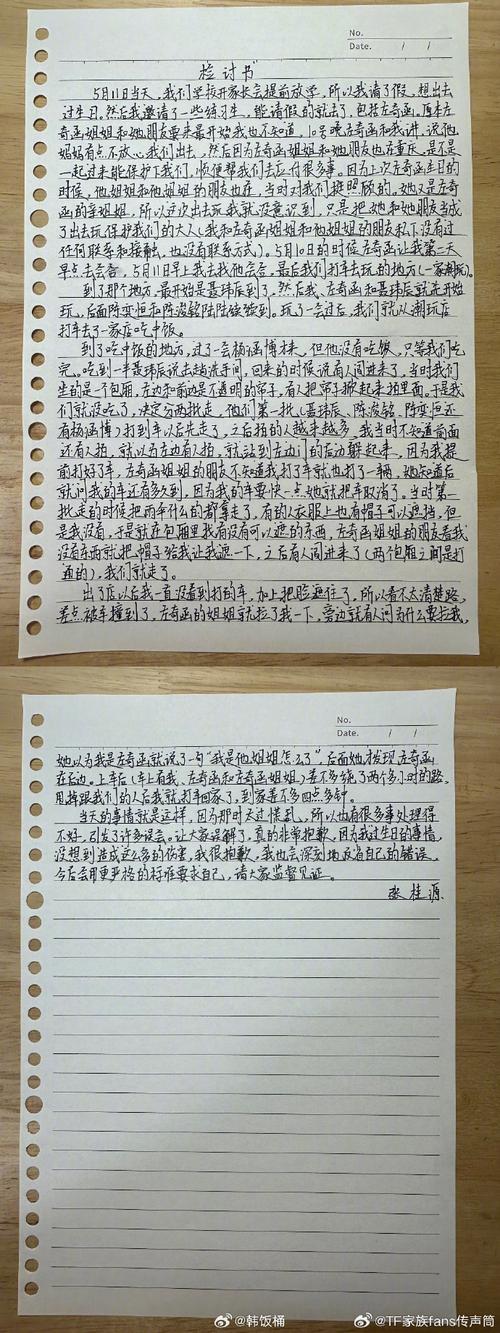 No.
Date. / /
检讨书
5月11日当天,我们学校开家长会提前放学,所以我请了假,想出去
过生日。然后我邀请了一些练习生,能请假的就去了,包括左奇函。原本左
奇函姐姐和她朋友要来最开始我也不知道,10号晚左奇函和我讲,说他
妈妈有点不放心我们出去,然后因为左奇函姐姐和她朋友也在重庆,是不是
一起过来能保护下我们,顺便帮我们去应付很多事。因为上次左奇函生日的
时候,他姐姐和他姐姐的朋友也在,当时对我们挺照顾的,她又是左奇
函的亲姐姐,所以这次出去玩我就没意识到,只是把她和她朋友当成
了出去玩保护我们的大人(我和左奇函姐姐和他姐姐的朋友私下没有过
任何联系和接触,也没有联系方式)。5月10日的时候左奇函让我第二天
早点去会合,5月11日早上我去找他会合,最后我们打车去玩的地方(一家潮玩)。
到了那个地方,最开始是聂玮辰到了,然后我、左奇函和聂玮辰就先开始
玩,后面陈奕恒和陈浚铭陆陆续续到。玩了一会过后,我们就从潮玩店
打车去了一家店吃中饭。
到了吃中饭的地方,过了一会杨涵博来,但他没有吃饭,只等我们吃
完。吃到一半聂玮辰说出去趟洗手间,回来的时候说有人闯进来了,当时我们
坐的是一个包厢,左边和前边是不透明的帘子,有人把帘子掀起来拍里面。于是我
们就没吃了,决定分两批走,他们第一批(聂玮辰、陈浚铭、陈奕恒还
有杨涵博)打到车以后先走了,之后拍的人越来越多,我当时不知道前面
还有人拍,就以为左边有人拍,就站到左边门的后边躲起来,因为我提
前打好了车,左奇函姐姐的朋友不知道我打了车就也打了一辆,她知道后
就问我的车还有多久到,因为我的车要快一点她就把车取消了,当时第一
批走的时候把雨伞什么的都拿走了,有的人衣服上也有帽子可以遮挡,但
是我没有,于是就在包厢里找有没有可以遮的东西,左奇函姐姐的朋友看我
没有东西就把帽子给我让我遮一下,之后有人闯进来了(两个包厢之间是打
通的),我们就走了。
出了店以后我一直没看到打的车,加上把脸遮住了,所以看不太清楚路,
差点被车撞到了,左奇函的姐姐就拉了我一下,旁边就有人问为什么要拉我,
No.
Date. / /
她以为我是左奇函就说了一句“我是他姐姐怎么了”,后面她才发现左奇函
在后边。上车后(车上有我、左奇函和左奇函姐姐)差不多绕了两个多小时的路,
甩掉跟我们的人后我就打车回家了,到家差不多四点多钟。
当天的事情就是这样,因为那时太慌乱,所以也有很多事处理得
不好,引发了许多误会。让大家误解了,真的非常抱歉,因为我过生日的事情,
没想到造成这么多的伤害,我很抱歉,我也会深刻地反省自己的错误,
今后会用更严格的标准要求自己,请大家监督见证。
张桂源
@韩饭桶
@TF家族fans传声筒